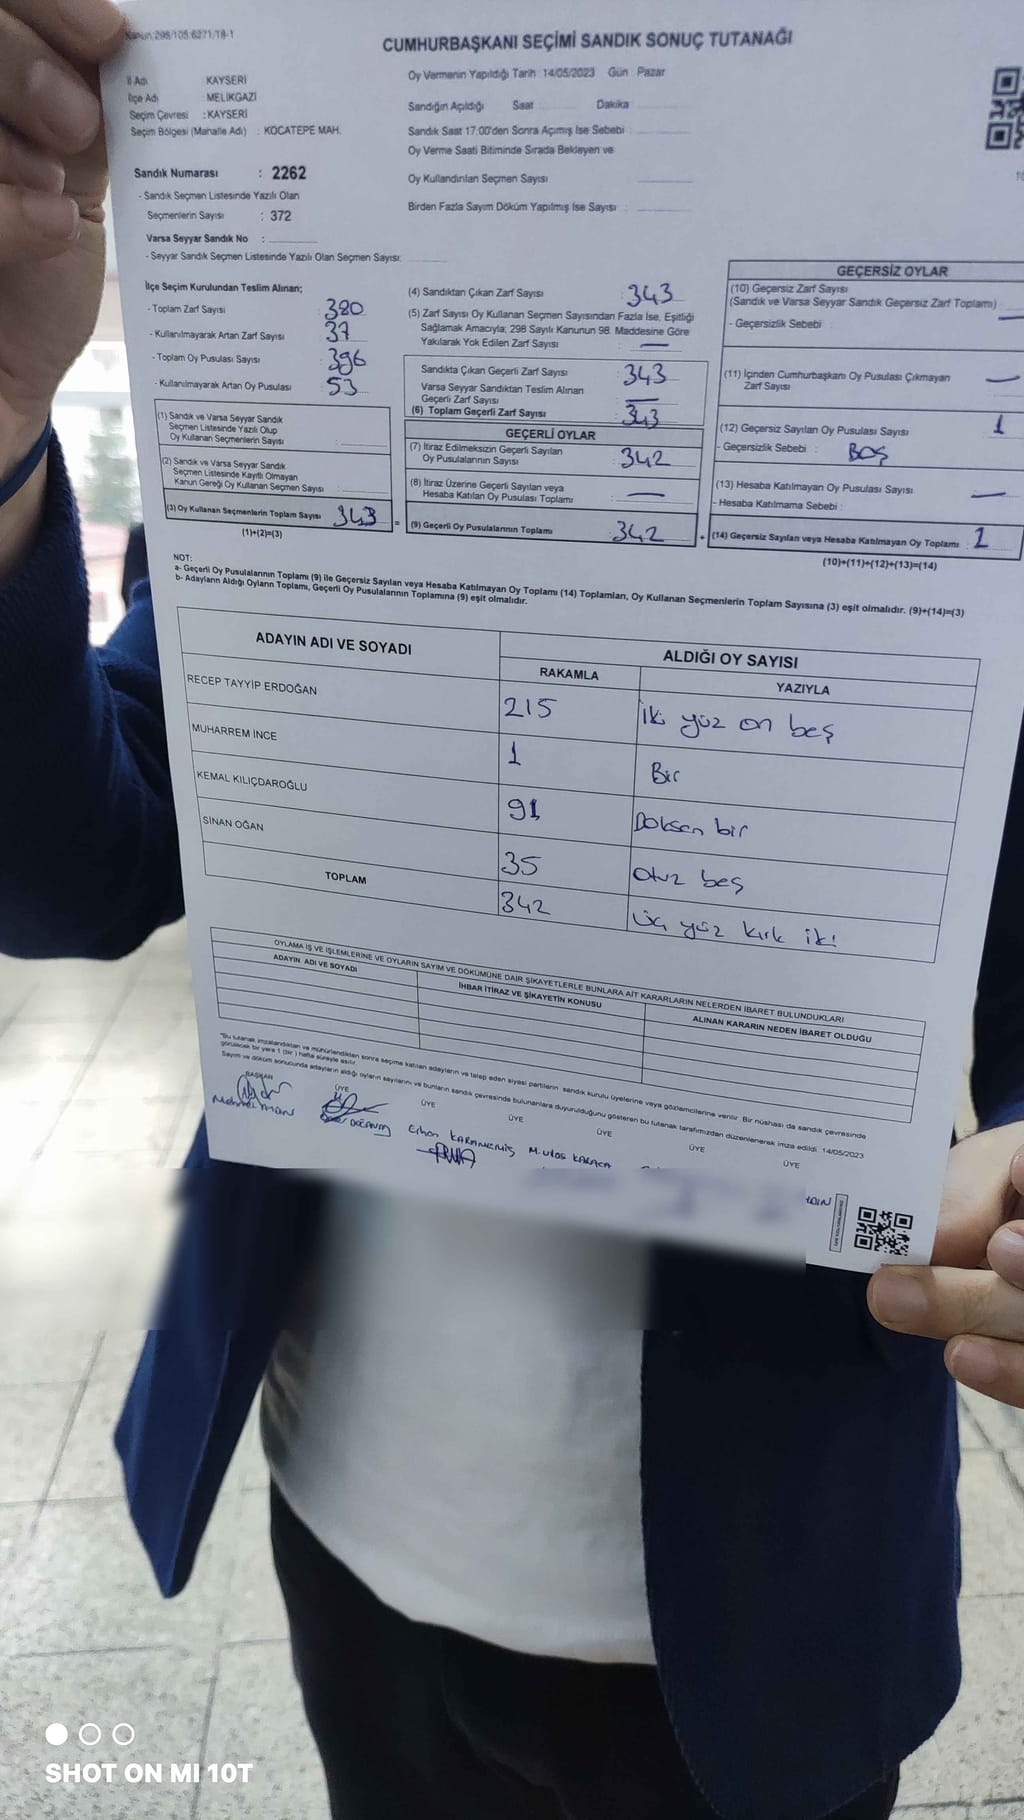 Kanun:298/105;6271/18-1
CUMHURBAŞKANI SEÇİMİ SANDIK SONUÇ TUTANAĞI
İl Adı KAYSERİ
İlçe Adı MELİKGAZİ
Seçim Çevresi : KAYSERİ
Seçim Bölgesi (Mahalle Adı) : KOCATEPE MAH.
Sandık Numarası : 2262
- Sandık Seçmen Listesinde Yazılı Olan
Seçmenlerin Sayısı : 372
Varsa Seyyar Sandık No :
- Seyyar Sandık Seçmen Listesinde Yazılı Olan Seçmen Sayısı:
Oy Vermenin Yapıldığı Tarih 14/05/2023 Gün Pazar
Sandığın Açıldığı Saat Dakika
Sandık Saat 17:00'den Sonra Açımış İse Sebebi :
Oy Verme Saati Bitiminde Sırada Bekleyen ve
Oy Kullandırılan Seçmen Sayısı
Birden Fazla Sayım Döküm Yapılmış İse Sayısı :
İlçe Seçim Kurulundan Teslim Alınan;
- Toplam Zarf Sayısı : 380
- Kullanılmayarak Artan Zarf Sayısı : 37
- Toplam Oy Pusulası Sayısı : 396
- Kullanılmayarak Artan Oy Pusulası : 53
(1) Sandık ve Varsa Seyyar Sandık
Seçmen Listesinde Yazılı Olup
Oy Kullanan Seçmenlerin Sayısı :
(2) Sandık ve Varsa Seyyar Sandık
Seçmen Listesinde Kayıtlı Olmayan
Kanun Gereği Oy Kullanan Seçmen Sayısı :
(3) Oy Kullanan Seçmenlerin Toplam Sayısı 343
(1)+(2)=(3)
(4) Sandıktan Çıkan Zarf Sayısı : 343
(5) Zarf Sayısı Oy Kullanan Seçmen Sayısından Fazla İse, Eşitliği
Sağlamak Amacıyla; 298 Sayılı Kanunun 98. Maddesine Göre
Yakılarak Yok Edilen Zarf Sayısı : —
Sandıkta Çıkan Geçerli Zarf Sayısı : 343
Varsa Seyyar Sandıktan Teslim Alınan
Geçerli Zarf Sayısı : —
(6) Toplam Geçerli Zarf Sayısı : 343
GEÇERLİ OYLAR
(7) İtiraz Edilmeksizin Geçerli Sayılan
Oy Pusulalarının Sayısı : 342
(8) İtiraz Üzerine Geçerli Sayılan veya
Hesaba Katılan Oy Pusulası Toplamı : —
= (9) Geçerli Oy Pusulalarının Toplamı : 342
GEÇERSİZ OYLAR
(10) Geçersiz Zarf Sayısı
(Sandık ve Varsa Seyyar Sandık Geçersiz Zarf Toplamı) : —
- Geçersizlik Sebebi :
(11) İçinden Cumhurbaşkanı Oy Pusulası Çıkmayan
Zarf Sayısı : —
(12) Geçersiz Sayılan Oy Pusulası Sayısı : 1
- Geçersizlik Sebebi : BOŞ
(13) Hesaba Katılmayan Oy Pusulası Sayısı : —
- Hesaba Katılmama Sebebi :
+ (14) Geçersiz Sayılan veya Hesaba Katılmayan Oy Toplamı : 1
(10)+(11)+(12)+(13)=(14)
NOT:
a- Geçerli Oy Pusulalarının Toplamı (9) ile Geçersiz Sayılan veya Hesaba Katılmayan Oy Toplamı (14) Toplamları, Oy Kullanan Seçmenlerin Toplam Sayısına (3) eşit olmalıdır. (9)+(14)=(3)
b- Adayların Aldığı Oyların Toplamı, Geçerli Oy Pusulalarının Toplamına (9) eşit olmalıdır.
ADAYIN ADI VE SOYADI ALDIĞI OY SAYISI
RAKAMLA YAZIYLA
RECEP TAYYİP ERDOĞAN 215 İki yüz on beş
MUHARREM İNCE 1 Bir
KEMAL KILIÇDAROĞLU 91 Doksan bir
SİNAN OĞAN 35 otuz beş
TOPLAM 342 Üç yüz kırk iki
OYLAMA İŞ VE İŞLEMLERİNE VE OYLARIN SAYIM VE DÖKÜMÜNE DAİR ŞİKAYETLERLE BUNLARA AİT KARARLARIN NELERDEN İBARET BULUNDUKLARI
ADAYIN ADI VE SOYADI İHBAR İTİRAZ VE ŞİKAYETİN KONUSU ALINAN KARARIN NEDEN İBARET OLDUĞU
"Bu tutanak imzalandıktan ve mühürlendikten sonra seçime katılan adayların ve talep eden siyasi partilerin sandık kurulu üyelerine veya gözlemcilerine verilir. Bir nüshası da sandık çevresinde
görülecek bir yere 1 (bir) hafta süreyle asılır.
Sayım ve döküm sonucunda adayların aldığı oyların sayılarını ve bunların sandık çevresinde bulunanlara duyurulduğunu gösteren bu tutanak tarafımızdan düzenlenerek imza edildi. 14/05/2023
BAŞKAN ÜYE ÜYE ÜYE ÜYE ÜYE ÜYE
Erhan KARAMEMİŞ M. Ulaş KARACA
SHOT ON MI 10T